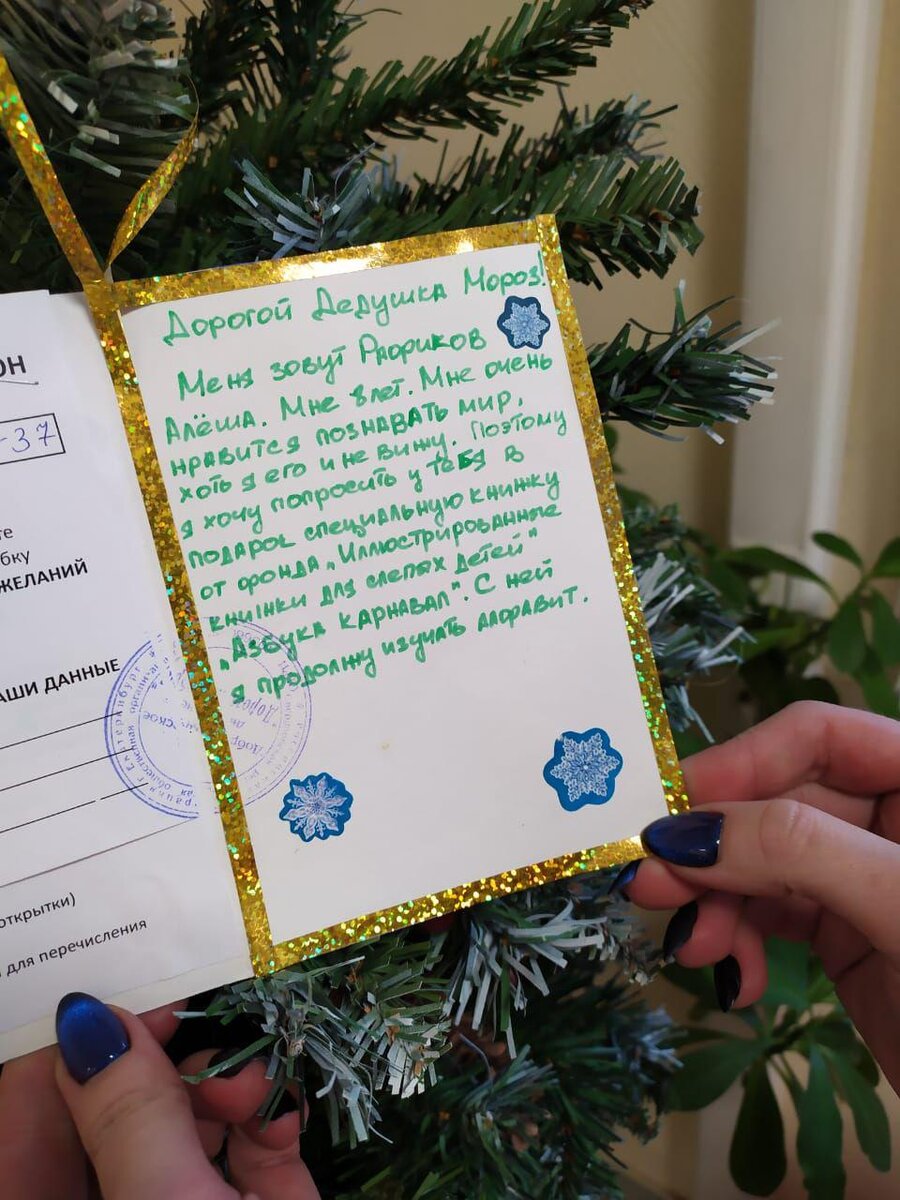 ОН
-37
те
бку
ЖЕЛАНИЙ
АШИ ДАННЫЕ
открытки)
для перечисления
Дорогой Дедушка Мороз!
Меня зовут Флориков
Алёша. Мне 8 лет. Мне очень
нравится познавать мир,
хоть я его и не вижу. Поэтому
я хочу попросить у тебя в
подарок специальную книжку
от фонда „Иллюстрированные
книжки для слепых детей"
„Азбука Карнавал". С ней
я продолжу изучать алфавит.
Екатеринбург
общественная организа